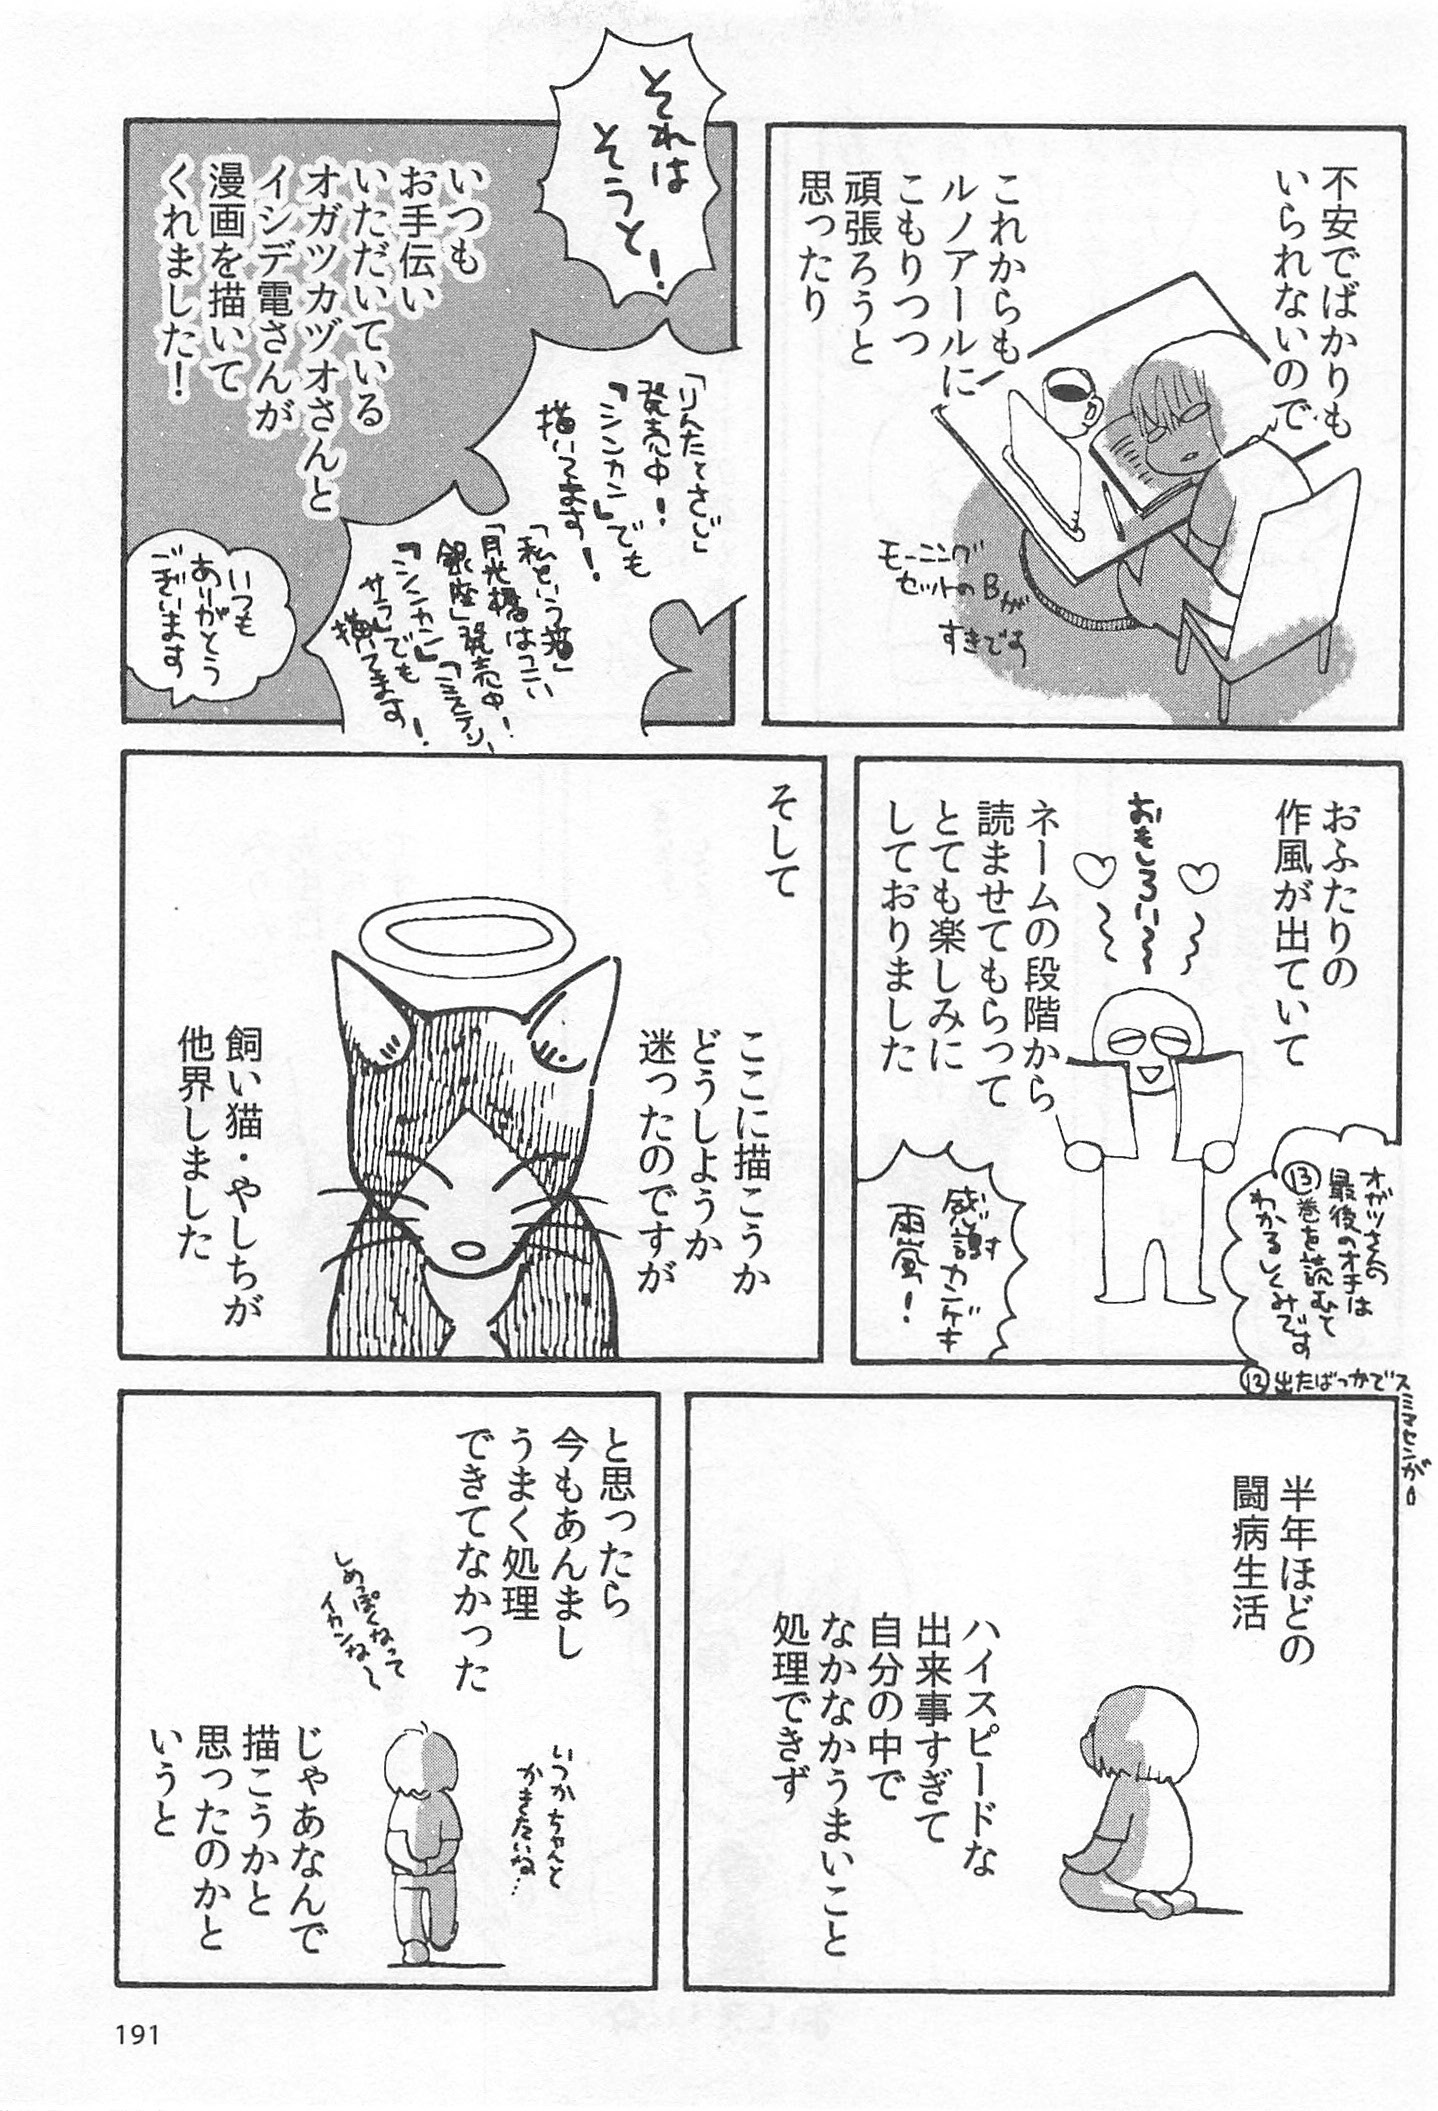 不安でばかりも
いられないので
これからも
ルノアールに
こもりつつ
頑張ろうと
思ったり
モーニング
セットのBが
すきです
それは
そうと！
いつも
お手伝い
いただいている
オガツカヅオさんと
イシデ電さんが
漫画を描いて
くれました！
「りんたとさじ」
発売中！
「シンカン」でも
描いてます！
「私という猫」
「月光橋はつこい
銀座」発売中！
「シンカン」「ミステリー
サラ」でも
描いてます！
いつも
ありがとう
ございます
おふたりの
作風が出ていて
おもしろい〜〜
ネームの段階から
読ませてもらって
とても楽しみに
しておりました
オガツさんの
最後のオチは
⑬巻を読むと
わかるしくみです
⑫出たばっかでスミマセンが。
感謝
カンゲキ
雨嵐！
そして
ここに描こうか
どうしようか
迷ったのですが
飼い猫・やしちが
他界しました
半年ほどの
闘病生活
ハイスピードな
出来事すぎて
自分の中で
なかなかうまいこと
処理できず
と思ったら
今もあんまし
うまく処理
できてなかった
しめっぽくなって
イカンな〜
いつかちゃんと
かきたいね…
じゃあなんで
描こうかと
思ったのかと
いうと
191